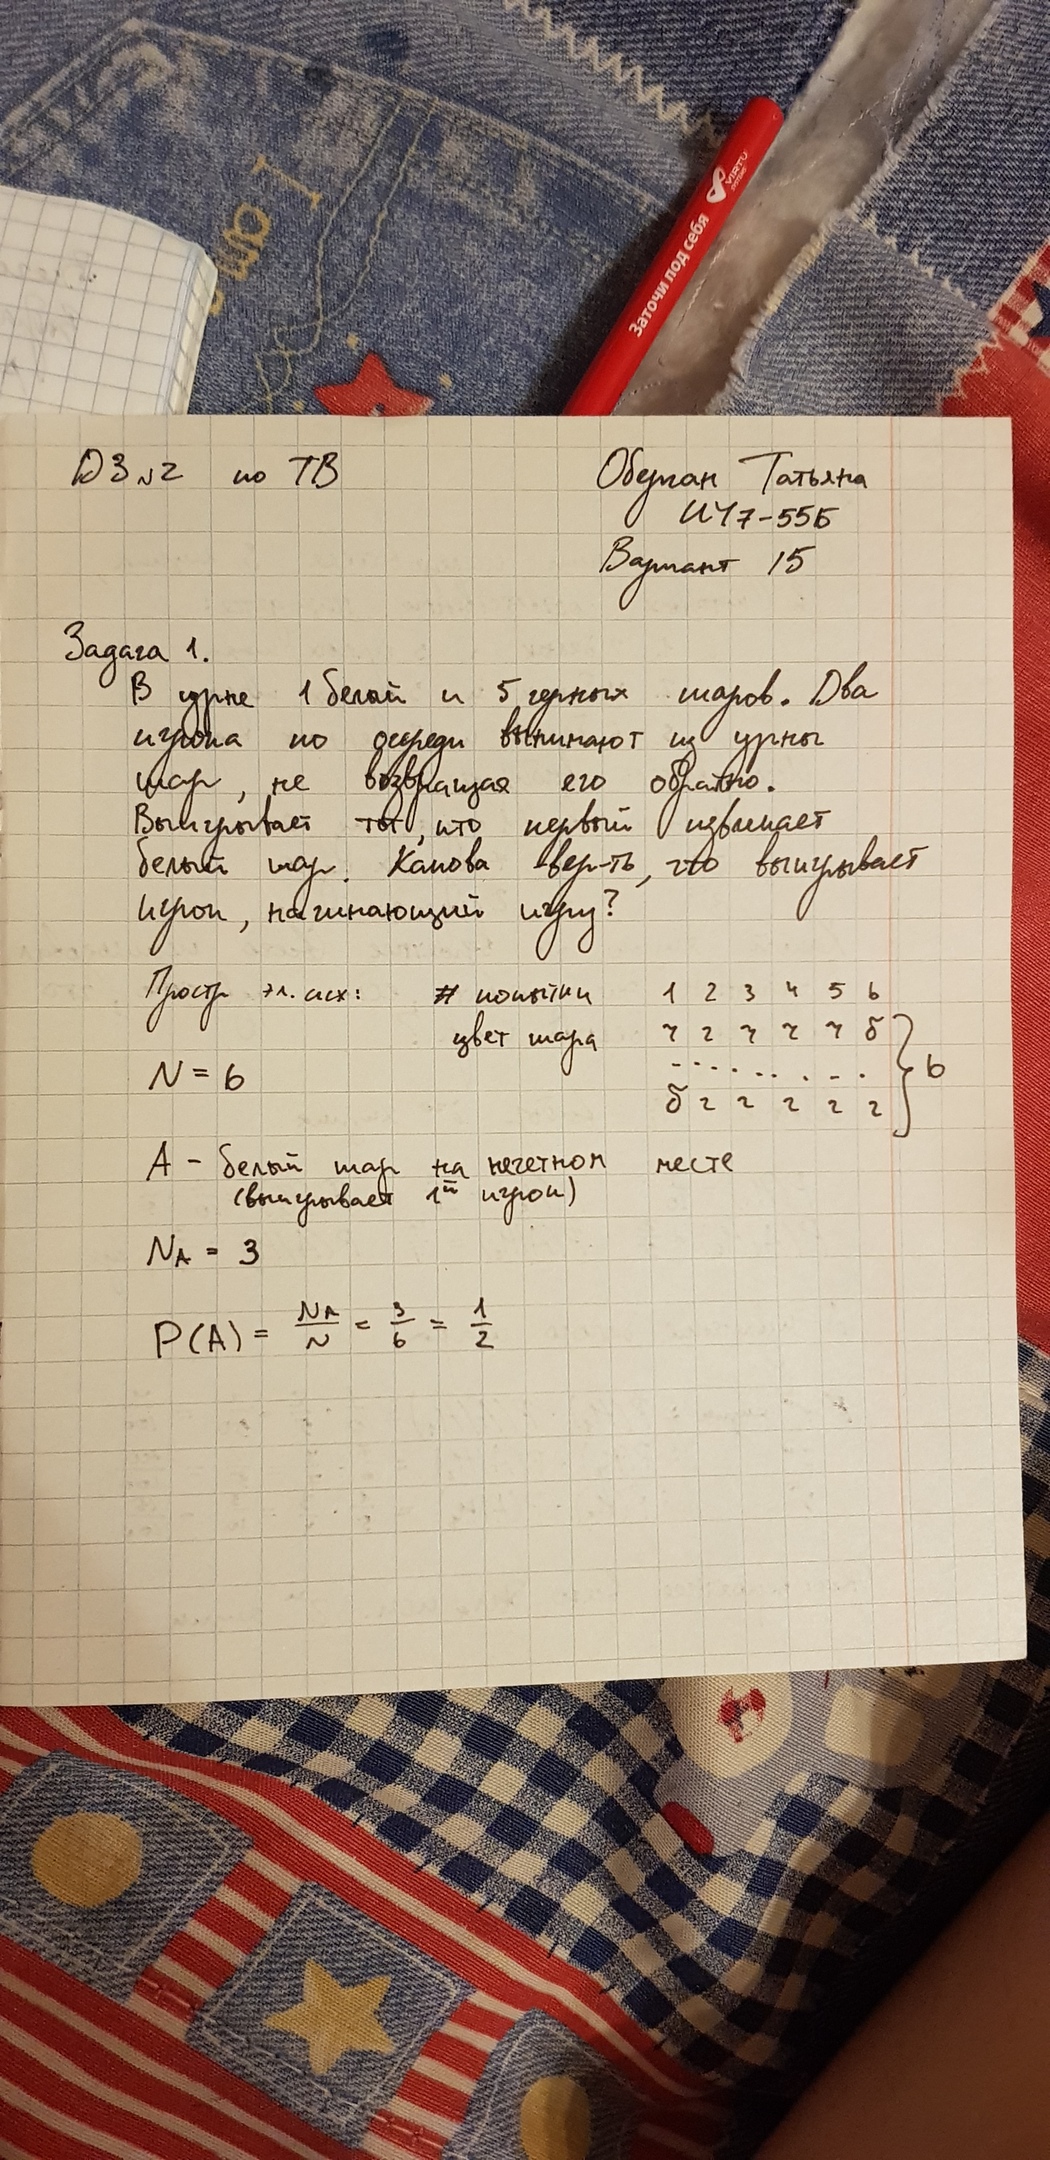 Заточи под себя
VIRTU
SYSTEMS
ДЗ №2 по ТВ
Оберган Татьяна
ИУ7-55Б
Вариант 15
Задача 1.
В урне 1 белый и 5 черных шаров. Два
игрока по очереди вынимают из урны
шар, не возвращая его обратно.
Выигрывает тот, кто первый извлекает
белый шар. Какова вер-ть, что выигрывает
игрок, начинающий игру?
Простр эл. исх: # попытки 1 2 3 4 5 6
цвет шара ч ч ч ч ч б
N = 6
б ч ч ч ч ч } 6
A - белый шар на нечетном месте
(выигрывает 1й игрок)
NA = 3
P(A) = NA/N = 3/6 = 1/2